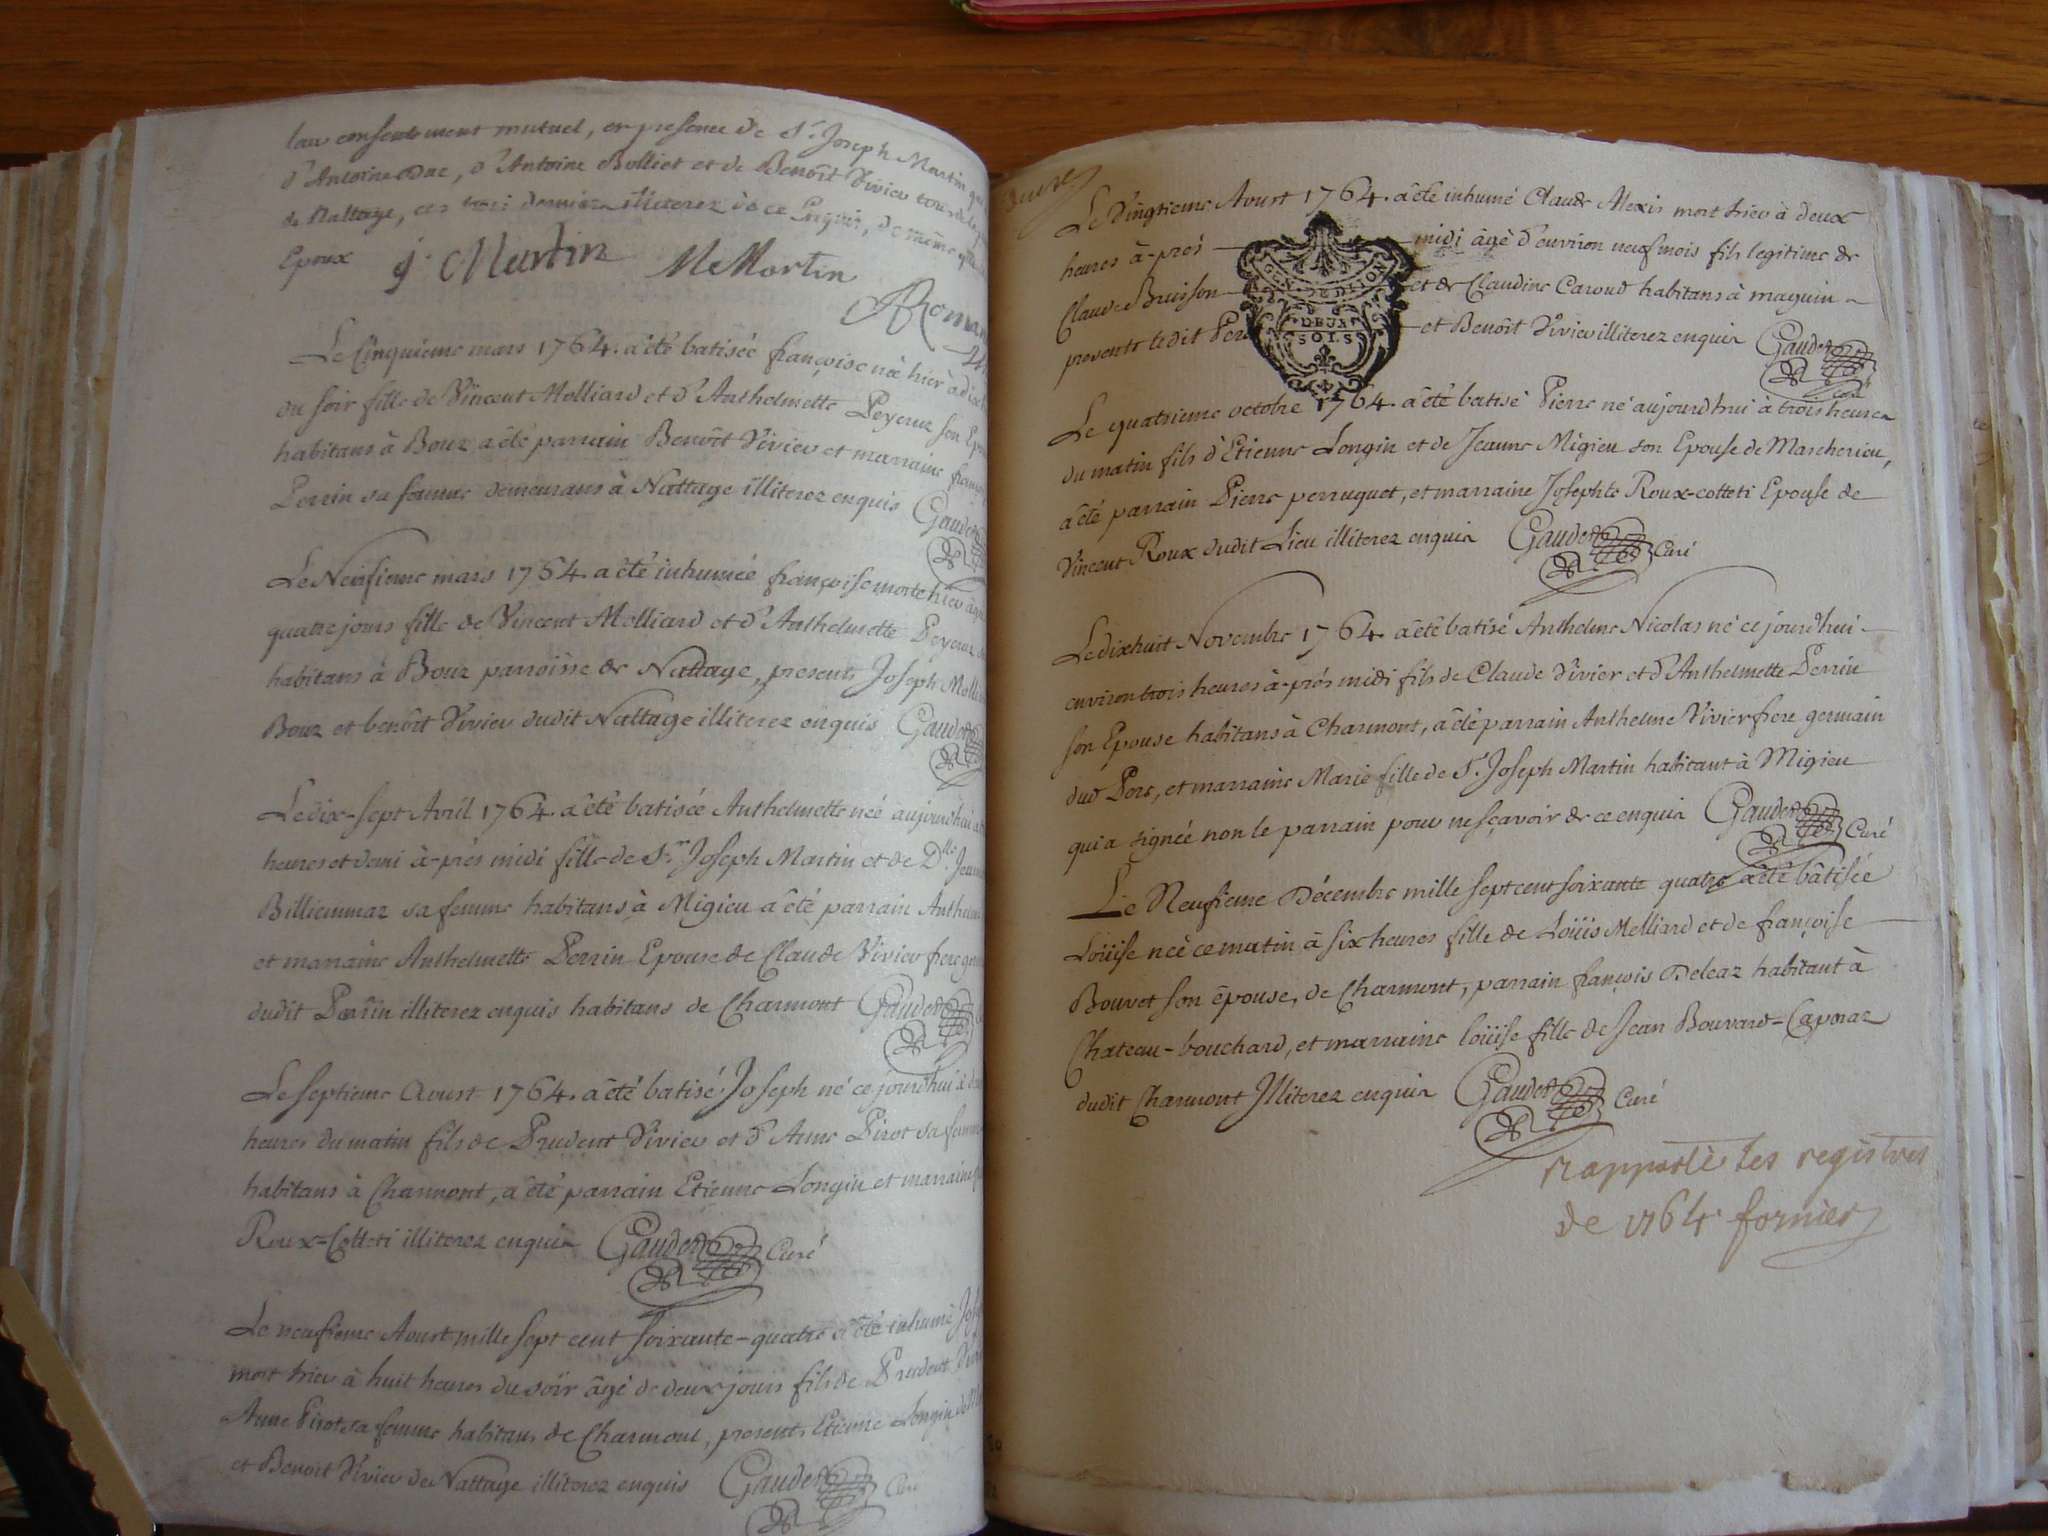 leur consentement mutuel, en presence de Sr. Joseph Martin qui
d'Antoine Dac, d'Antoine Bolliet et de Benoît Vivier tous
de Nattage, ces trois derniers illiterez de ce Enquis, de même que
Epoux J. Martin M Martin
Le Cinquieme mars 1764. a êté batisée françoise née hier à dix
du soir fille de Vincent Molliard et d'Anthelmette Peyeuz son Ep
habitans à Bouz a êté parrain Benoît Vivier et marraine fran
Perrin sa femme demeurans à Nattage illiterez enquis Gaudet
Le Neufieme mars 1764. a êté inhumée françoise morte hier âgée
quatre jours fille de Vincent Molliard et d'Anthelmette Peyeuz
habitans à Bouz parroisse de Nattage, presents Joseph Molli
Bouz et benoît Vivier dudit Nattage illiterez enquis Gaudet
Le dix-sept Avril 1764. a êté batisée Anthelmette née aujourdhui a
heures et demi à-prés midi fille de Sr. Joseph Martin et de Dlle. Jeanne
Billiemmaz sa femme habitans à Migieu a êté parrain Anthelme
et marraine Anthelmette Perrin Epouse de Claude Vivier frere ger
dudit Parrin illiterez enquis habitans de Charmont Gaudet
Le septieme Aoust 1764. a êté batisé Joseph né ce jourdhui à
heures du matin fils de Prudent Vivier et d'Anne Pirot sa femme
habitans à Charmont, a êté parrain Etienne Longin et marraine
Roux=Cotteti illiterez enquis Gaudet Curé
Le neufieme Aoust mille sept cent soixante-quatre a êté inhumé Jos
mort hier à huit heures du soir âgé de deux jours fils de Prudent Viv
Anne Pirot sa femme habitans de Charmont, presents Etienne Longin
et Benoit Vivier de Nattage illiterez enquis Gaudet Curé
Le Vingtieme Aoust 1764. a êté inhumé Claude Alexis mort hier à deux
heures à-prés midi âgé d'environ neuf mois fils legitime de
Claude Buisson et de Claudine Caroud habitans à maguin
presents ledit Pere et Benoît Vivier illiterez enquis Gaudet
GEN
DEUX
SOLS
Le quatrieme octobre 1764. a êté batisé Pierre né aujourdhui à trois heures
du matin fils d'Etienne Longin et de Jeanne Migieu son Epouse de Marcherieu,
a êté parrain Pierre perruguet, et marraine Josephte Roux-cotteti Epouse de
Vincent Roux dudit Lieu illiterez enquis Gaudet Curé
Le dixhuit Novembre 1764. a êté batisé Anthelme Nicolas né ce jourdhui
environ trois heures à-prés midi fils de Claude Vivier et d'Anthelmette Perrin
son Epouse habitans à Charmont, a êté parrain Anthelme Vivier frere germain
dud Pere, et marraine Marie fille de Sr. Joseph Martin habitant à Migieu
qui a signée non le parrain pour ne sçavoir de ce enquis Gaudet Curé
Le Neufieme Décembre mille sept cent soixante quatre a êté bâtisée
Loüise née ce matin à six heures fille de Loüis Melliard et de françoise
Bouvet son épouse, de Charmont, parrain françois Deleaz habitant à
Chateau-bouchard, et marraine loüise fille de Jean Bouvard=Caporaz
dudit Charmont Illiterez enquis Gaudet Curé
rapporté les registres
de 1764 fornier